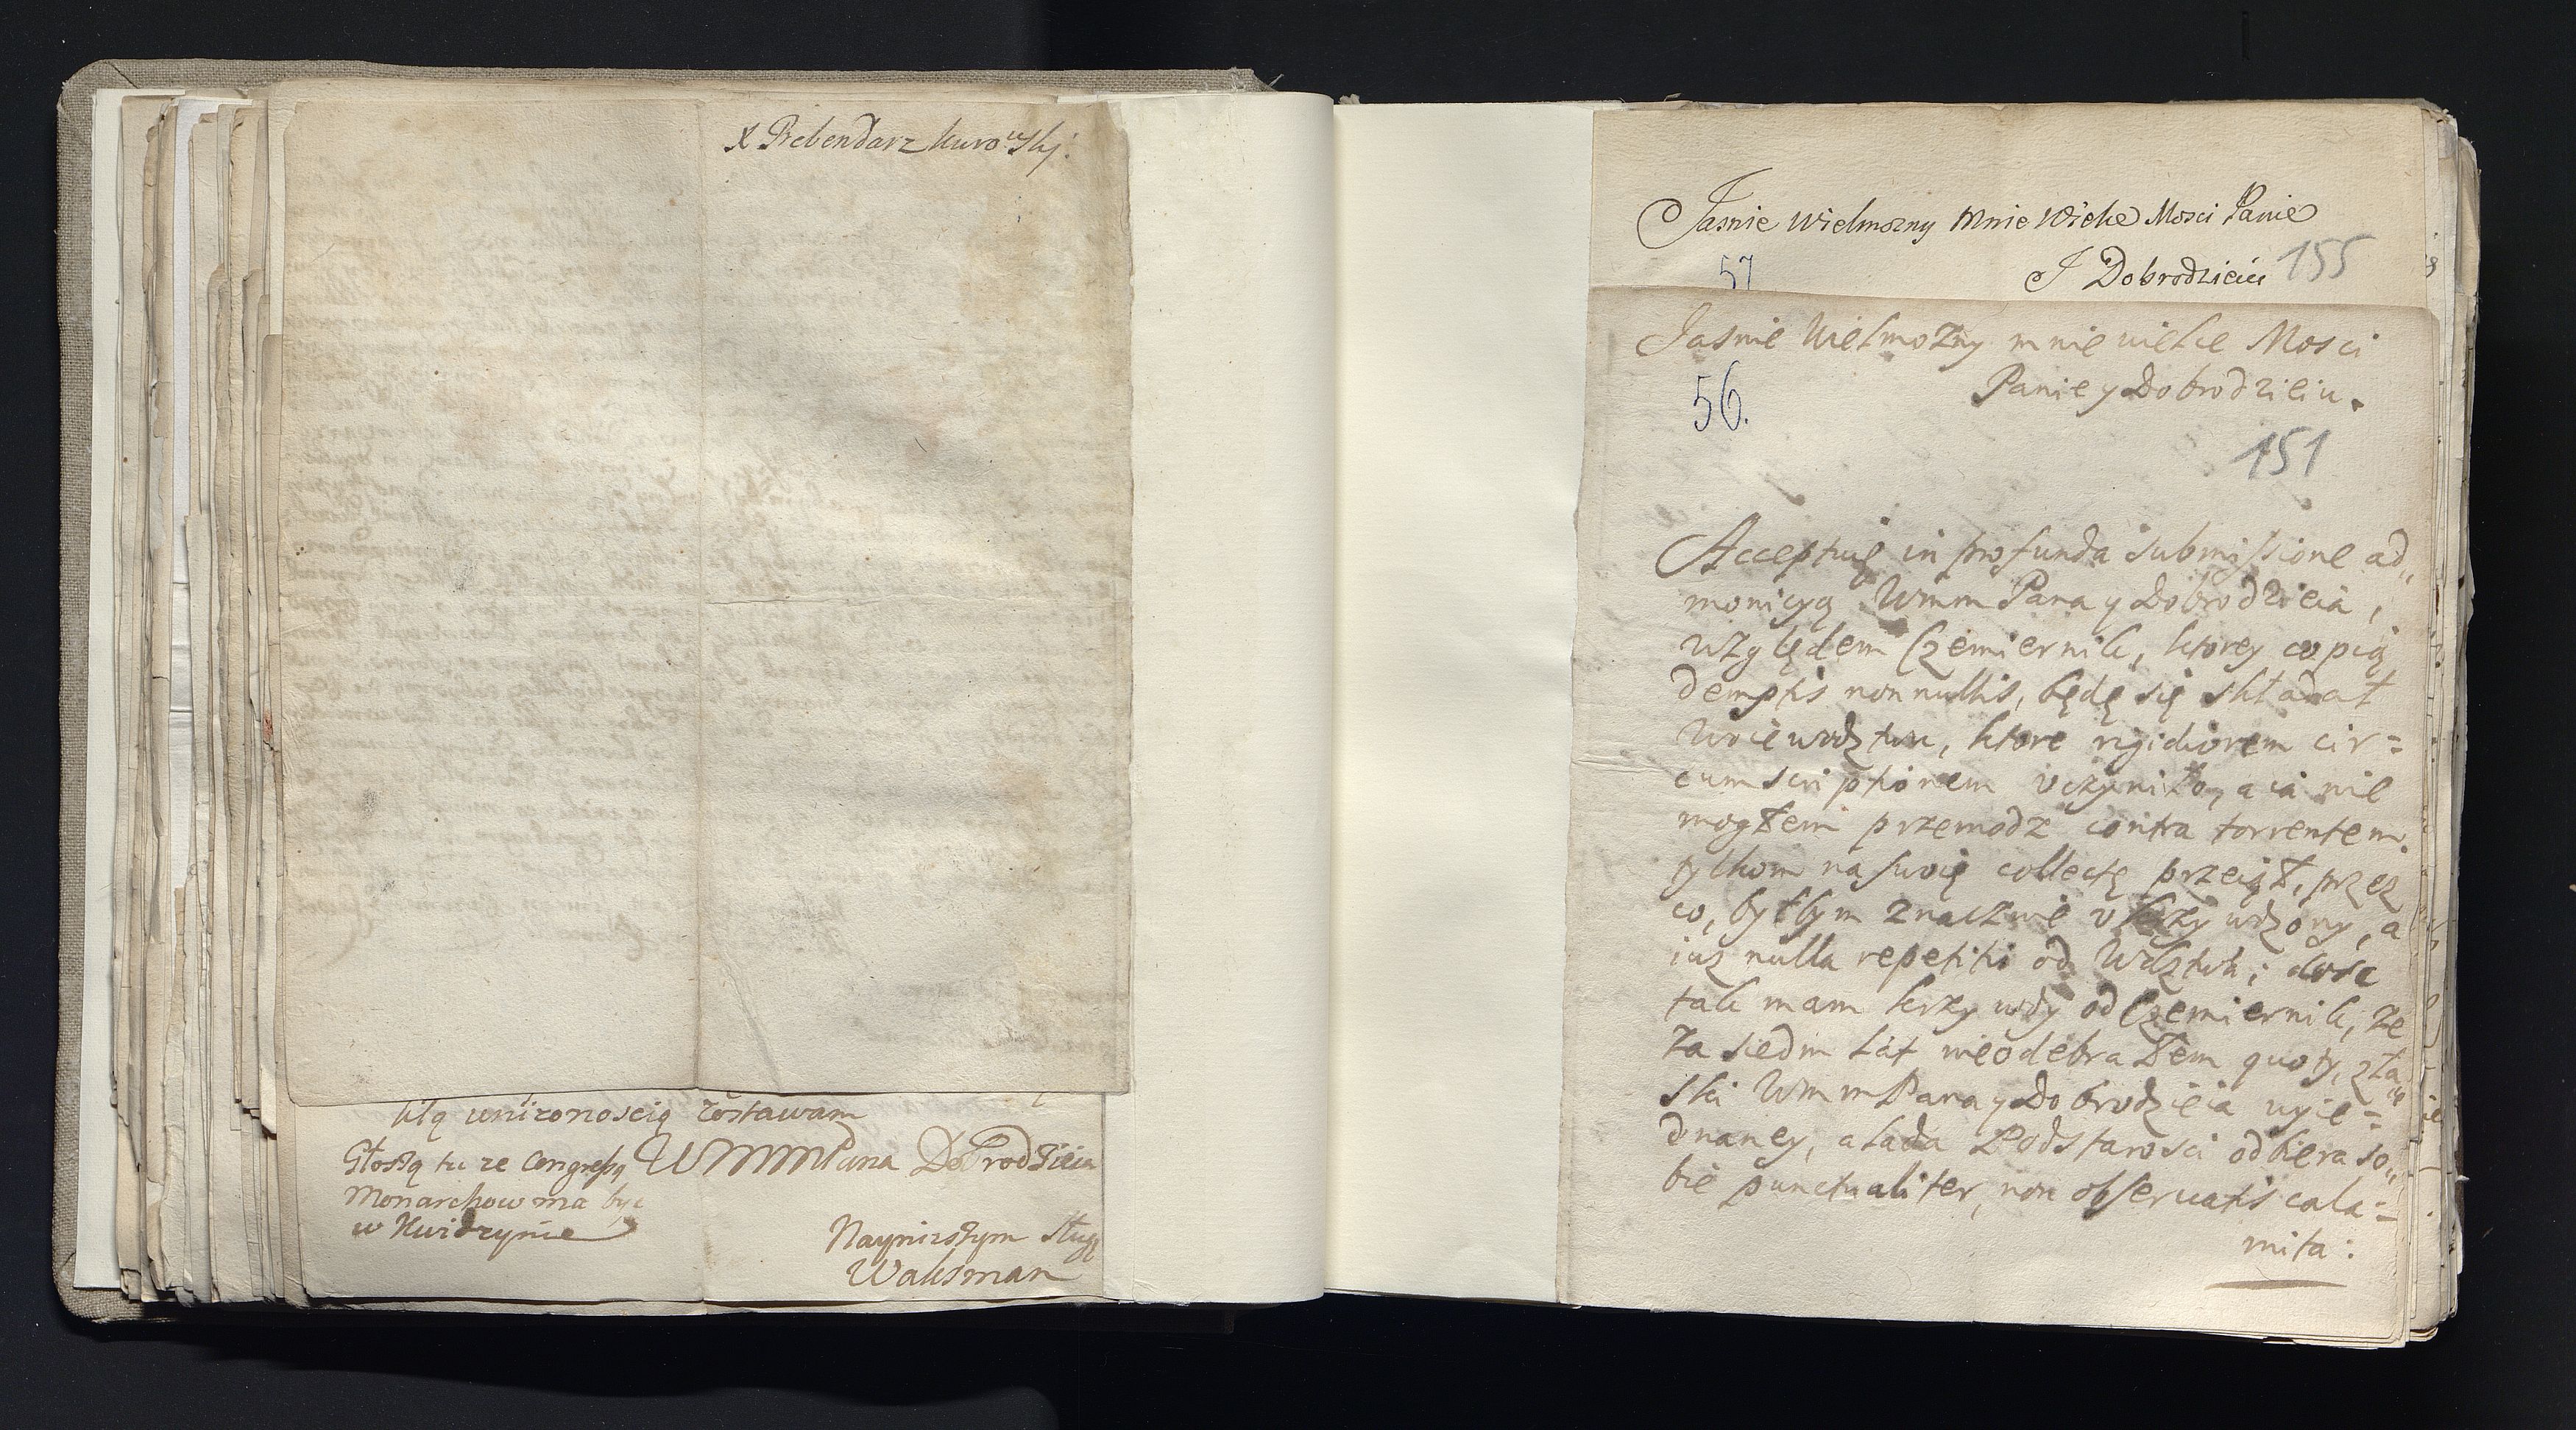 X Prebendarz Kurowskj:
ką unizonoscią zostawam
Głoszą tu ze Congressą WMMPana Dobrodzieia
Monarchow ma byc
w Kwidzynie
Nayniszszym sługą
Waksman
Jasnie Wielmozny Mnie Wielce Mosci Panie
J Dobrodzieiu 155
57
Jasnie Wielmozny mnie wielce Mosci
Panie y Dobrodzieiu.
56.
151
Acceptuię in profunda submissione ad„
monicyą Wmm Pana y Dobrodzieia,
względem Czemiernik, ktorey copią
demptis nonnullis, będę się składał
Woiewodztwu, ktore rigidiorem cir=
cumscriptionem vczyniło, a ia nie
mogłem przemodz contra torrentem.
tylkom na swoię collectę przeiął, przez
co, byłbym znacznie vkrzywdzony, a
iuz nulla repetitio od Wdztwa; dosc
tak mam krzywdy od Czemiernik, ze
za siedm lat nieodebrałem quoty, z ła„
ski Wmm Pana y Dobrodzieia vyie=
dnaney, a lada Podstarosci odbiera so„
bie punctualiter, non observatis cala=
mita: